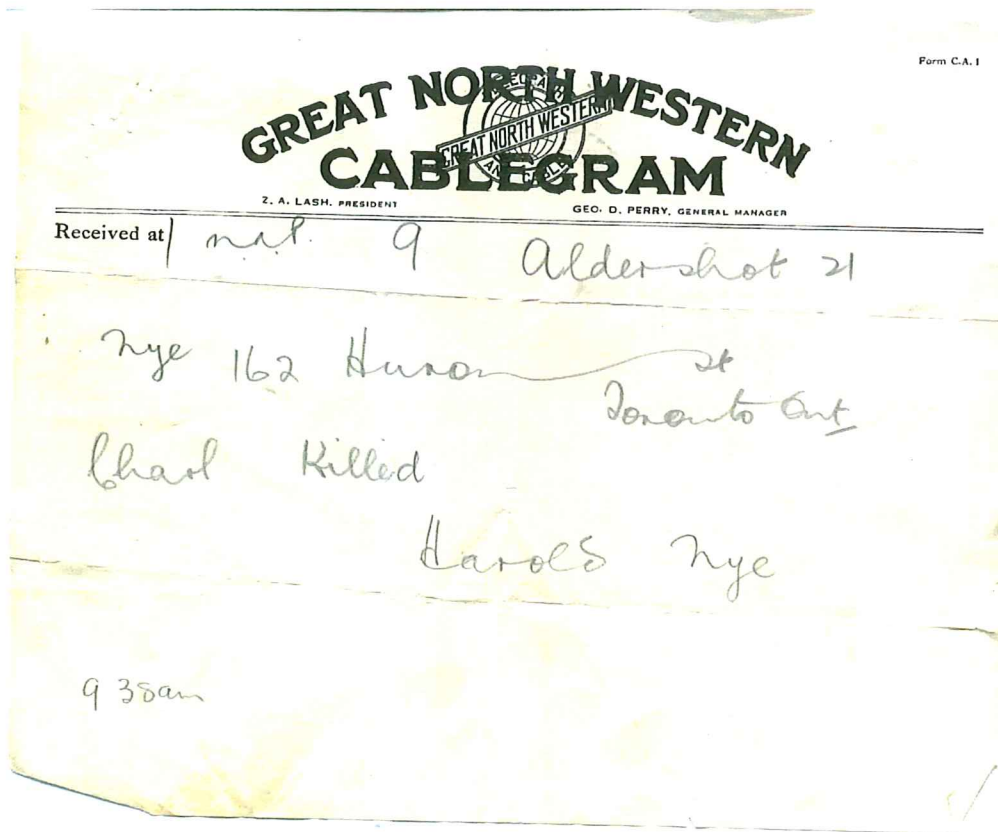 Form C.A.1
GREAT NORTH WESTERN
TELEGRAPH
GREAT NORTH WESTERN
AND CABLE
CABLEGRAM
Z. A. LASH, PRESIDENT GEO. D. PERRY, GENERAL MANAGER
Received at 9 Aldershot 21
Nye 162 Huron St
Toronto Ont
Charl Killed
Harold Nye
9 38am